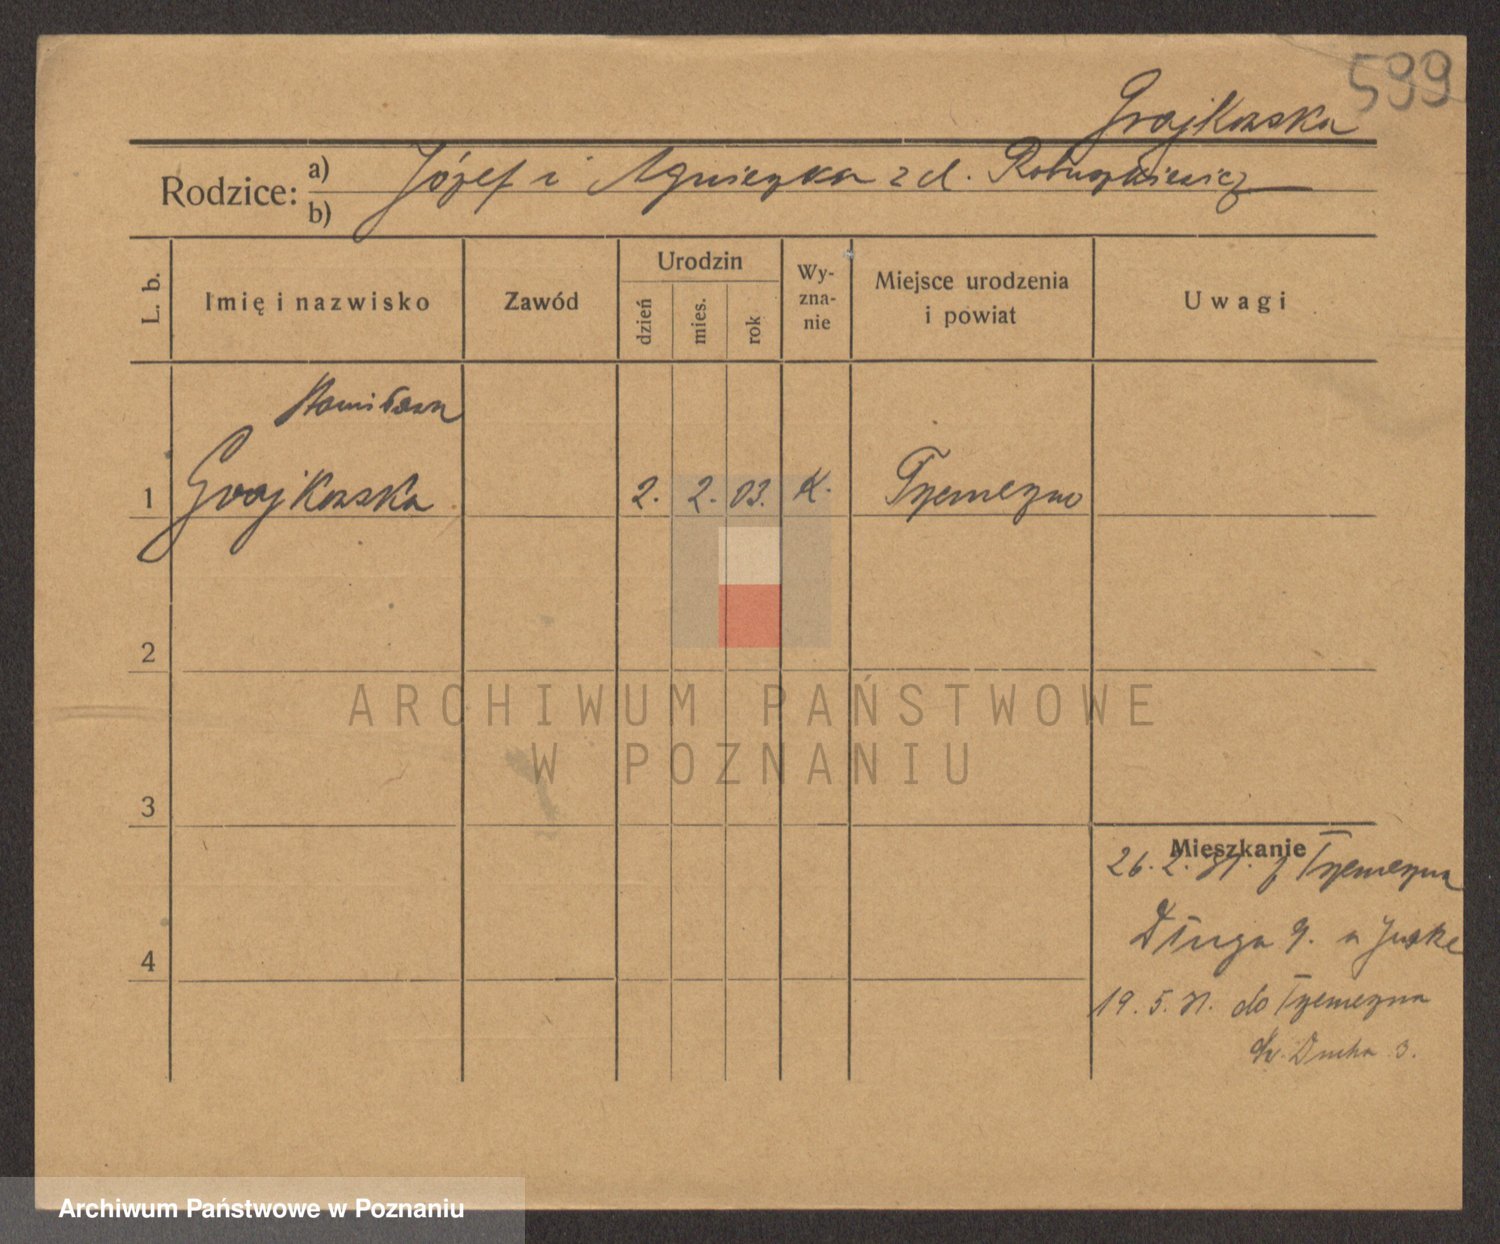 599
Grajkowska
Rodzice: a) Józef i Agnieszka z d. Ratuszkiewicz
b)
L. b. Imię i nazwisko Zawód Urodzin dzień mies. rok Wy-zna-nie Miejsce urodzenia i powiat Uwagi
Stanisława
1 Grajkowska 2. 2. 03. K. Trzemeszno
2
ARCHIWUM PAŃSTWOWE
W POZNANIU
3
Mieszkanie
26. 2. 31. z Trzemeszna
4 Długa 9. u
19. 5. 31. do Trzemeszna
Św. Ducha 3.
Archiwum Państwowe w Poznaniu